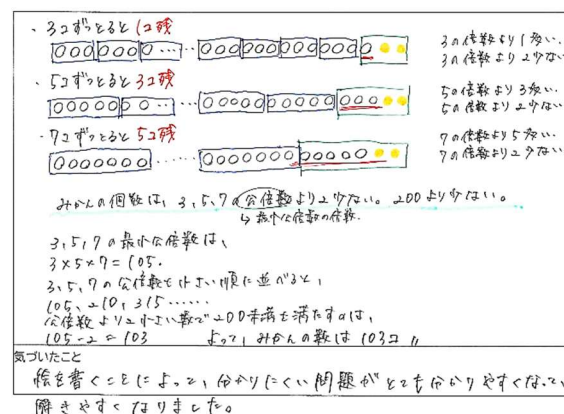 ・3コずつとると 1コ残
3の倍数より1多い.
3の倍数より2少ない
・5コずつとると 3コ残
5の倍数より3多い.
5の倍数より2少ない
・7コずつとると 5コ残
7の倍数より5多い.
7の倍数より2少ない
みかんの個数は、3,5,7の公倍数より2少ない。200より少ない。
↳最小公倍数の倍数.
3,5,7の最小公倍数は、
3×5×7=105.
3,5,7の公倍数を小さい順に並べると、
105、210、315……
公倍数より2小さい数で200未満を満たすのは、
105-2=103 よって、みかんの数は103コ〃
気づいたこと
絵を書くことによって、分かりにくい問題がとても分かりやすくなって、
解きやすくなりました。